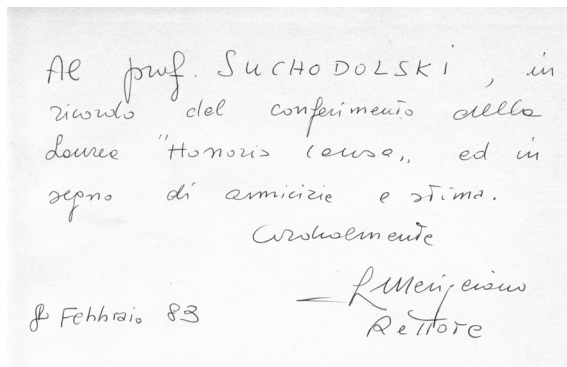 Al prof. SUCHODOLSKI, in
ricordo del conferimento della
Laurea "Honoris Causa„ ed in
segno di amicizia e stima.
Cordialmente
Rettore
8 Febbraio 83